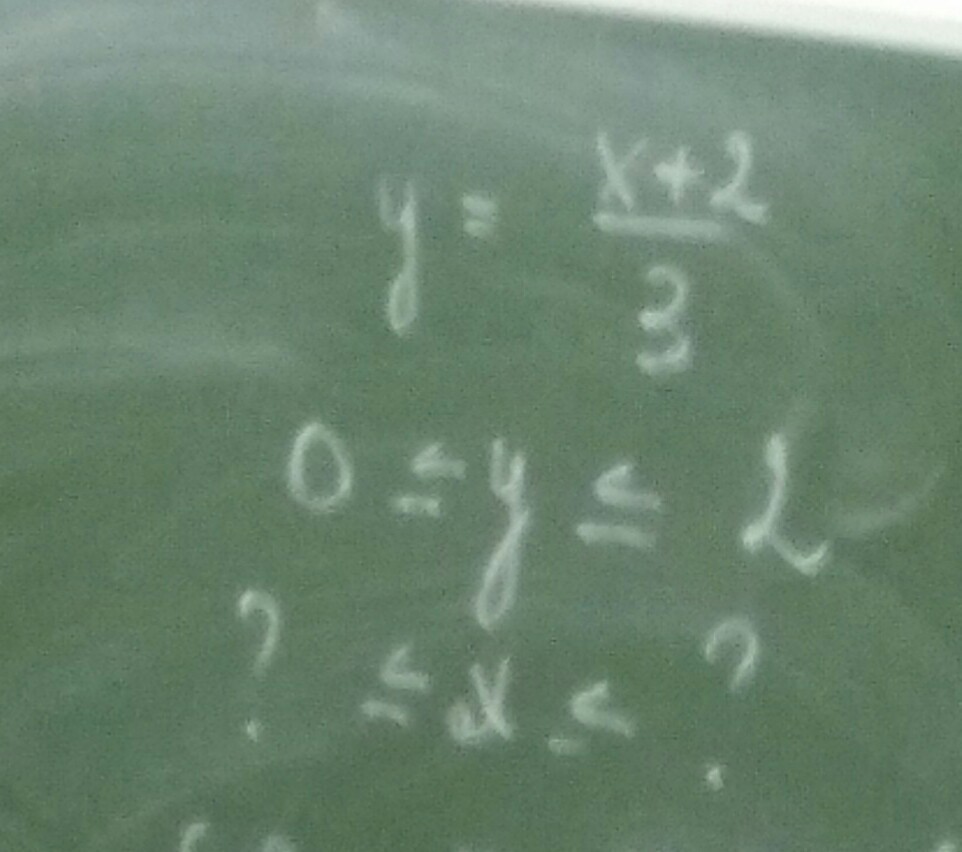 y = x+2
3
0 ≤ y ≤ 2
? ≤ x ≤ ?